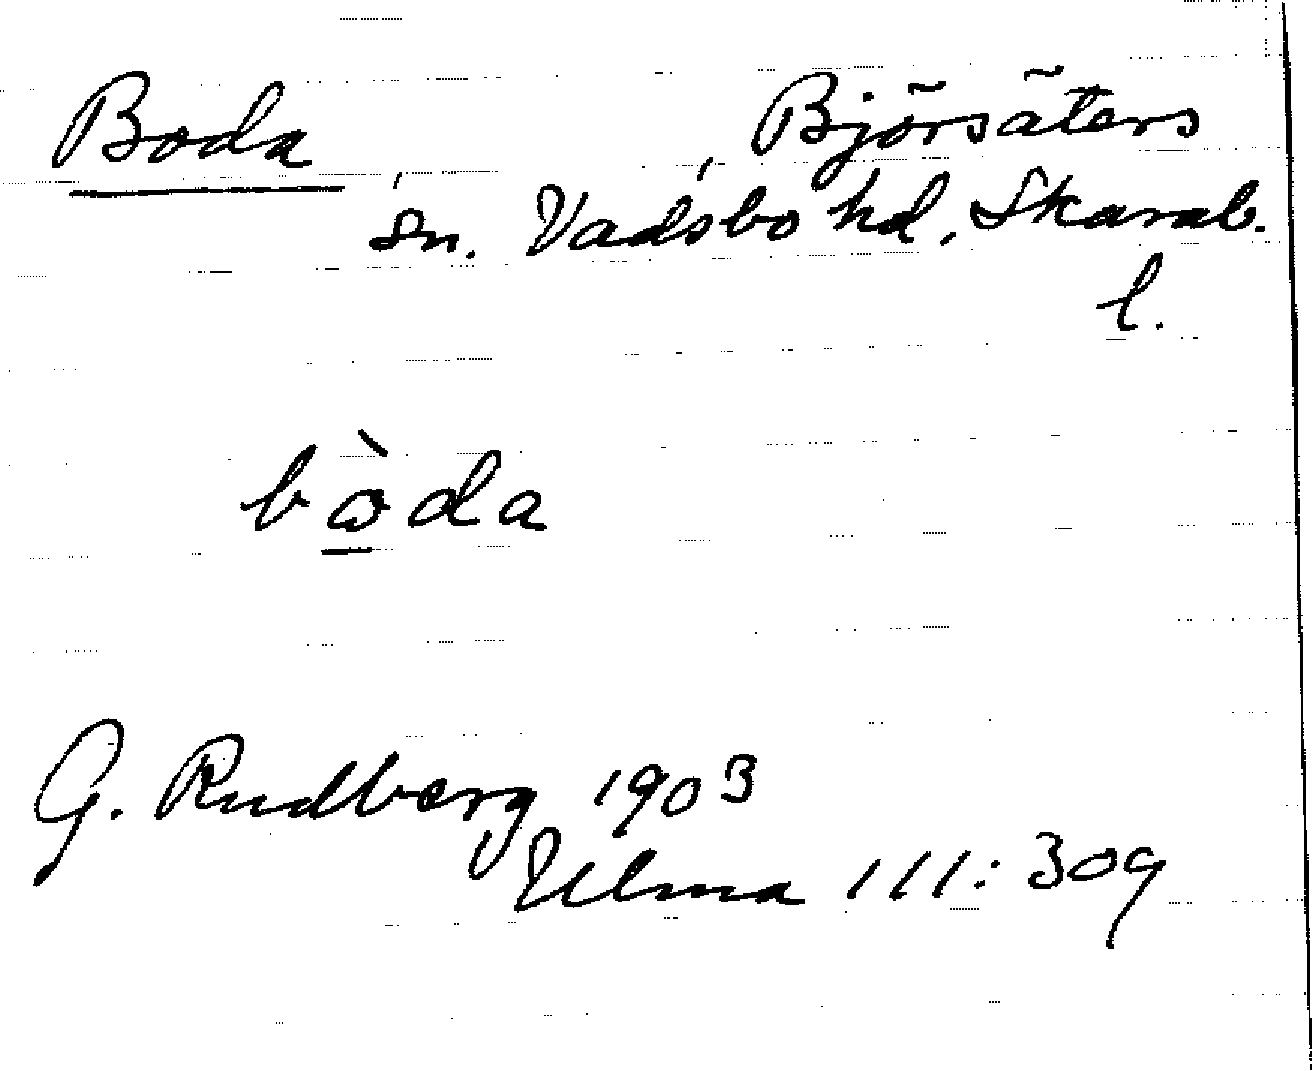 Boda Björsäters
sn. Vadsbo hd, Skarab.
l.
bòda
G. Rudberg 1903
Ulma 111:309